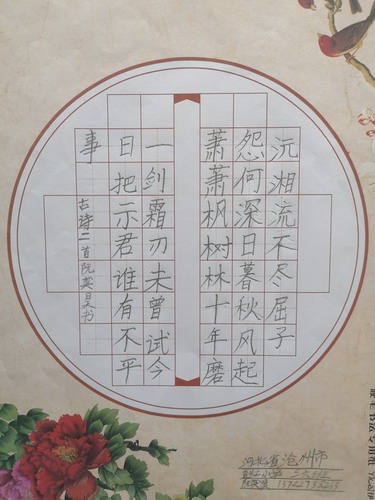 沅湘流不尽屈子
怨何深日暮秋风起
萧萧枫树林十年磨
一剑霜刃未曾试今
日把示君谁有不平
事
古诗二首阮英昊书
河北省沧州市
硬笔书法专用纸